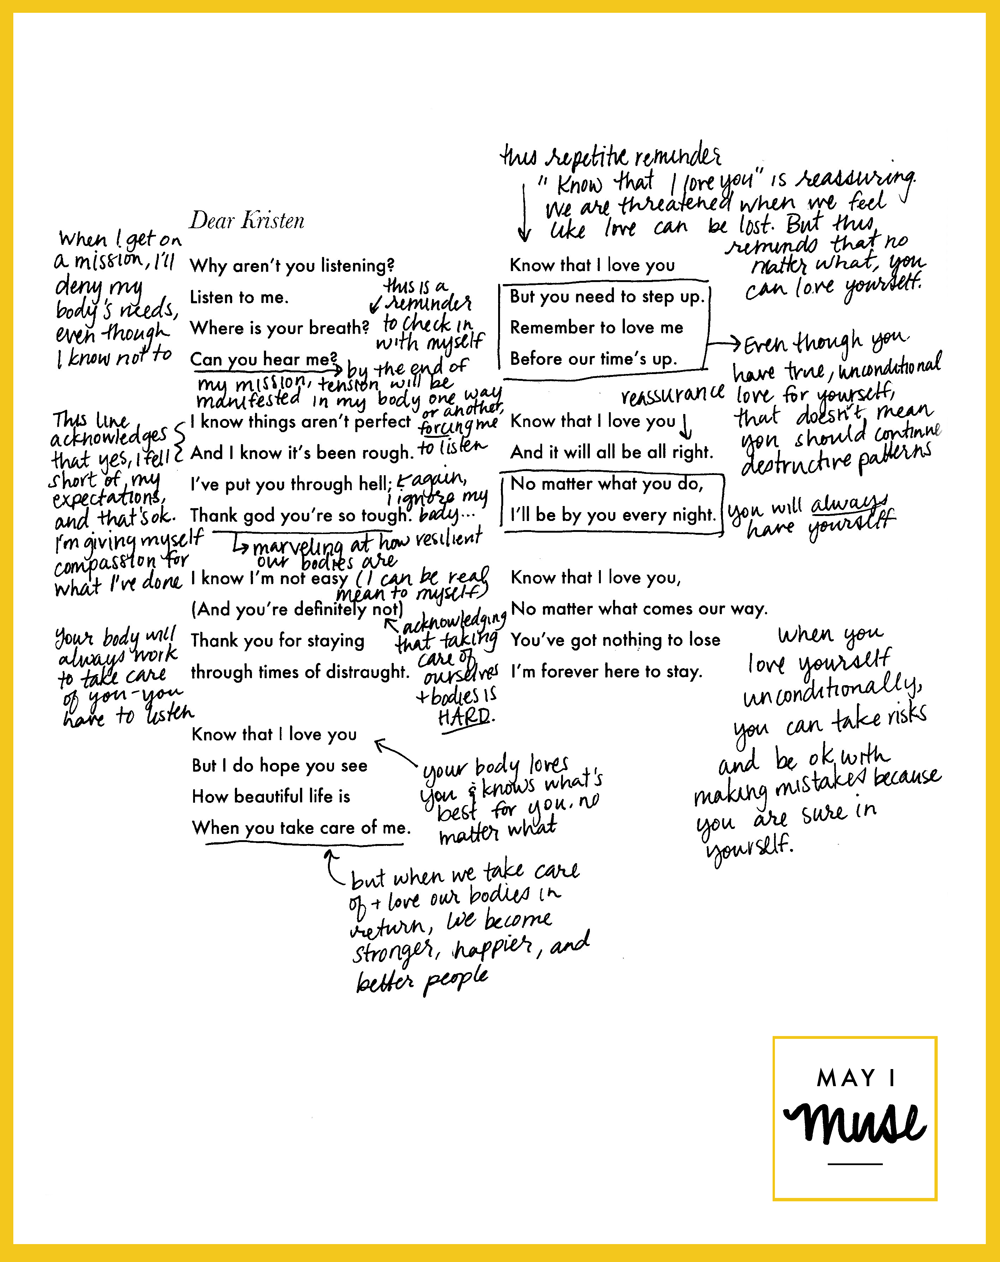 Dear Kristen
Why aren't you listening?
Listen to me.
Where is your breath?
Can you hear me?
I know things aren't perfect
And I know it's been rough.
I've put you through hell;
Thank god you're so tough.
I know I'm not easy
(And you're definitely not)
Thank you for staying
through times of distraught.
Know that I love you
But I do hope you see
How beautiful life is
When you take care of me.
Know that I love you
But you need to step up.
Remember to love me
Before our time's up.
Know that I love you
And it will all be all right.
No matter what you do,
I'll be by you every night.
Know that I love you,
No matter what comes our way.
You've got nothing to lose
I'm forever here to stay.
When I get on
a mission, I'll
deny my
body's needs,
even though
I know not to
this is a
reminder
to check in
with myself
by the end of
my mission, tension will be
manifested in my body one way
or another,
forcing me
to listen
This line
acknowledges
that yes, I fell
short of my
expectations,
and that's ok.
I'm giving myself
compassion for
what I've done
again,
I ignore my
body...
marveling at how resilient
our bodies are
(I can be real
mean to myself)
acknowledging
that taking
care of
ourselves
+ bodies is
HARD.
Your body will
always work
to take care
of you - you
have to listen
your body loves
you & knows what's
best for you, no
matter what
but when we take care
of + love our bodies in
return, we become
stronger, happier, and
better people
this repetitive reminder
"Know that I love you" is reassuring.
We are threatened when we feel
like love can be lost. But this
reminds that no
matter what, you
can love yourself.
Even though you
have true, unconditional
love for yourself,
that doesn't mean
you should continue
destructive patterns
reassurance
you will always
have yourself
when you
love yourself
unconditionally,
you can take risks
and be ok with
making mistakes because
you are sure in
yourself.
MAY I
muse